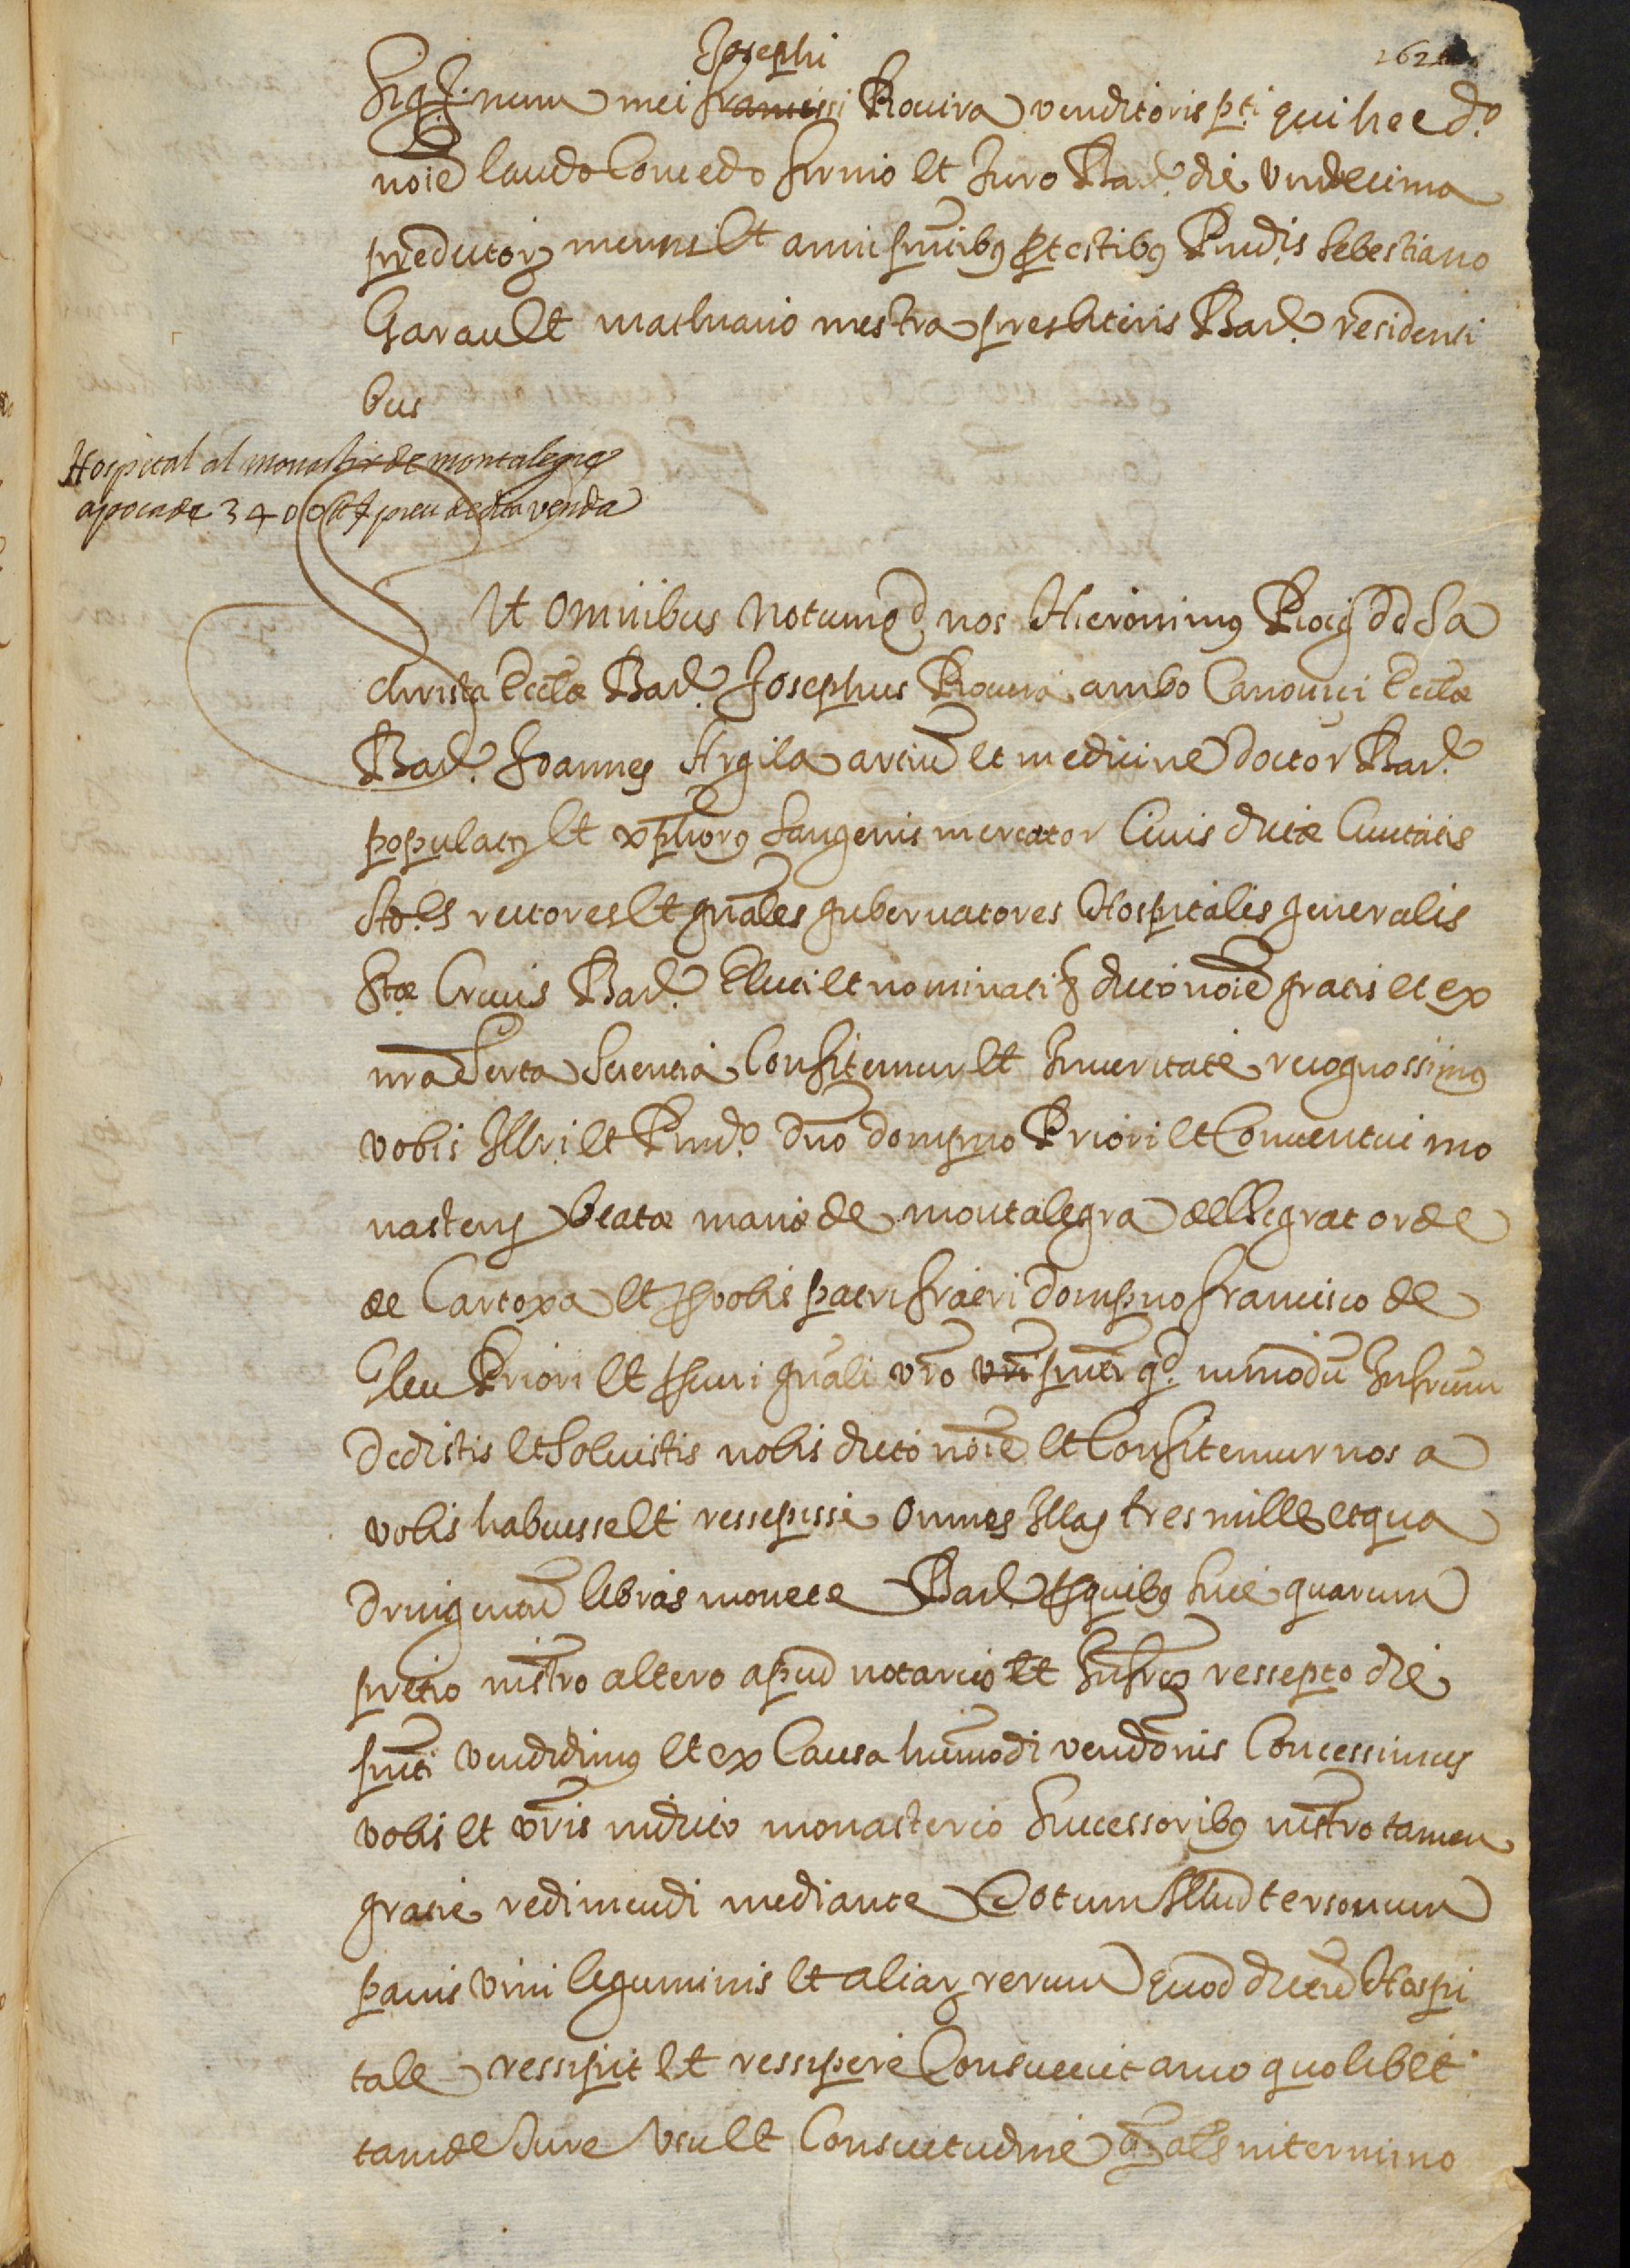 Josephi
Sig+num mei francissi Rovira venditoris pti qui hec do
noie laudo Concedo firmo et Juro Barc. die undecima
predictor mensis et anni presentibus pro testibus Rndis Sebestiano
Garau et mathia mestra presbiteris Barc. residenti
bus
Hospital al monastir de montalegre
apoca de 3400 ll preu de dita venda
Ut omnibus notum q nos Hieronimus Roig dd Sa
christa Eccl[ae] Barc. Josephus Rovira ambo Canonici Ecclæ
Barc. Joannes Argila artiu et medicine doctor Barc.
populatq et xphorus Sangenis mercator Civis dictæ Civitatis
rectores et gnales gubernatores Hospitalis generalis
Stæ Crucis Barc. Electi et nominati dicto noie gratis et ex
nra Serta Scientia Confitemur et In veritate recognossimus
vobis Illri et Rnd.o dno dompno Priori et Conventui mo
nasterij beatæ mariæ de montalegra
de Cartoxa et pro vobis patri fratri dompno francisco de
Gleu Priori et gnali vro in modu Infrum
dedistis et Solvistis nobis dicto noie et Confitemur nos a
vobis habuisse et ressepisse omnes Illas tres mille et qua
dringentas libras monete Barc. pro quibus sive quarum
pretio nistro altero apud notario et Infros ressepto die
pnti vendidimus et ex Causa humodi vendonis Concessimus
vobis et vris in dicto monasterio Successoribus nistro tamen
gratie redimendi mediante Totum Illud tersonum
panis vini leguminis et aliar rerum quod dictu Hospi
tale ressipit et ressipere Consuevit anno quolibet
tam de Jure usu et Consuetudine q als in termino